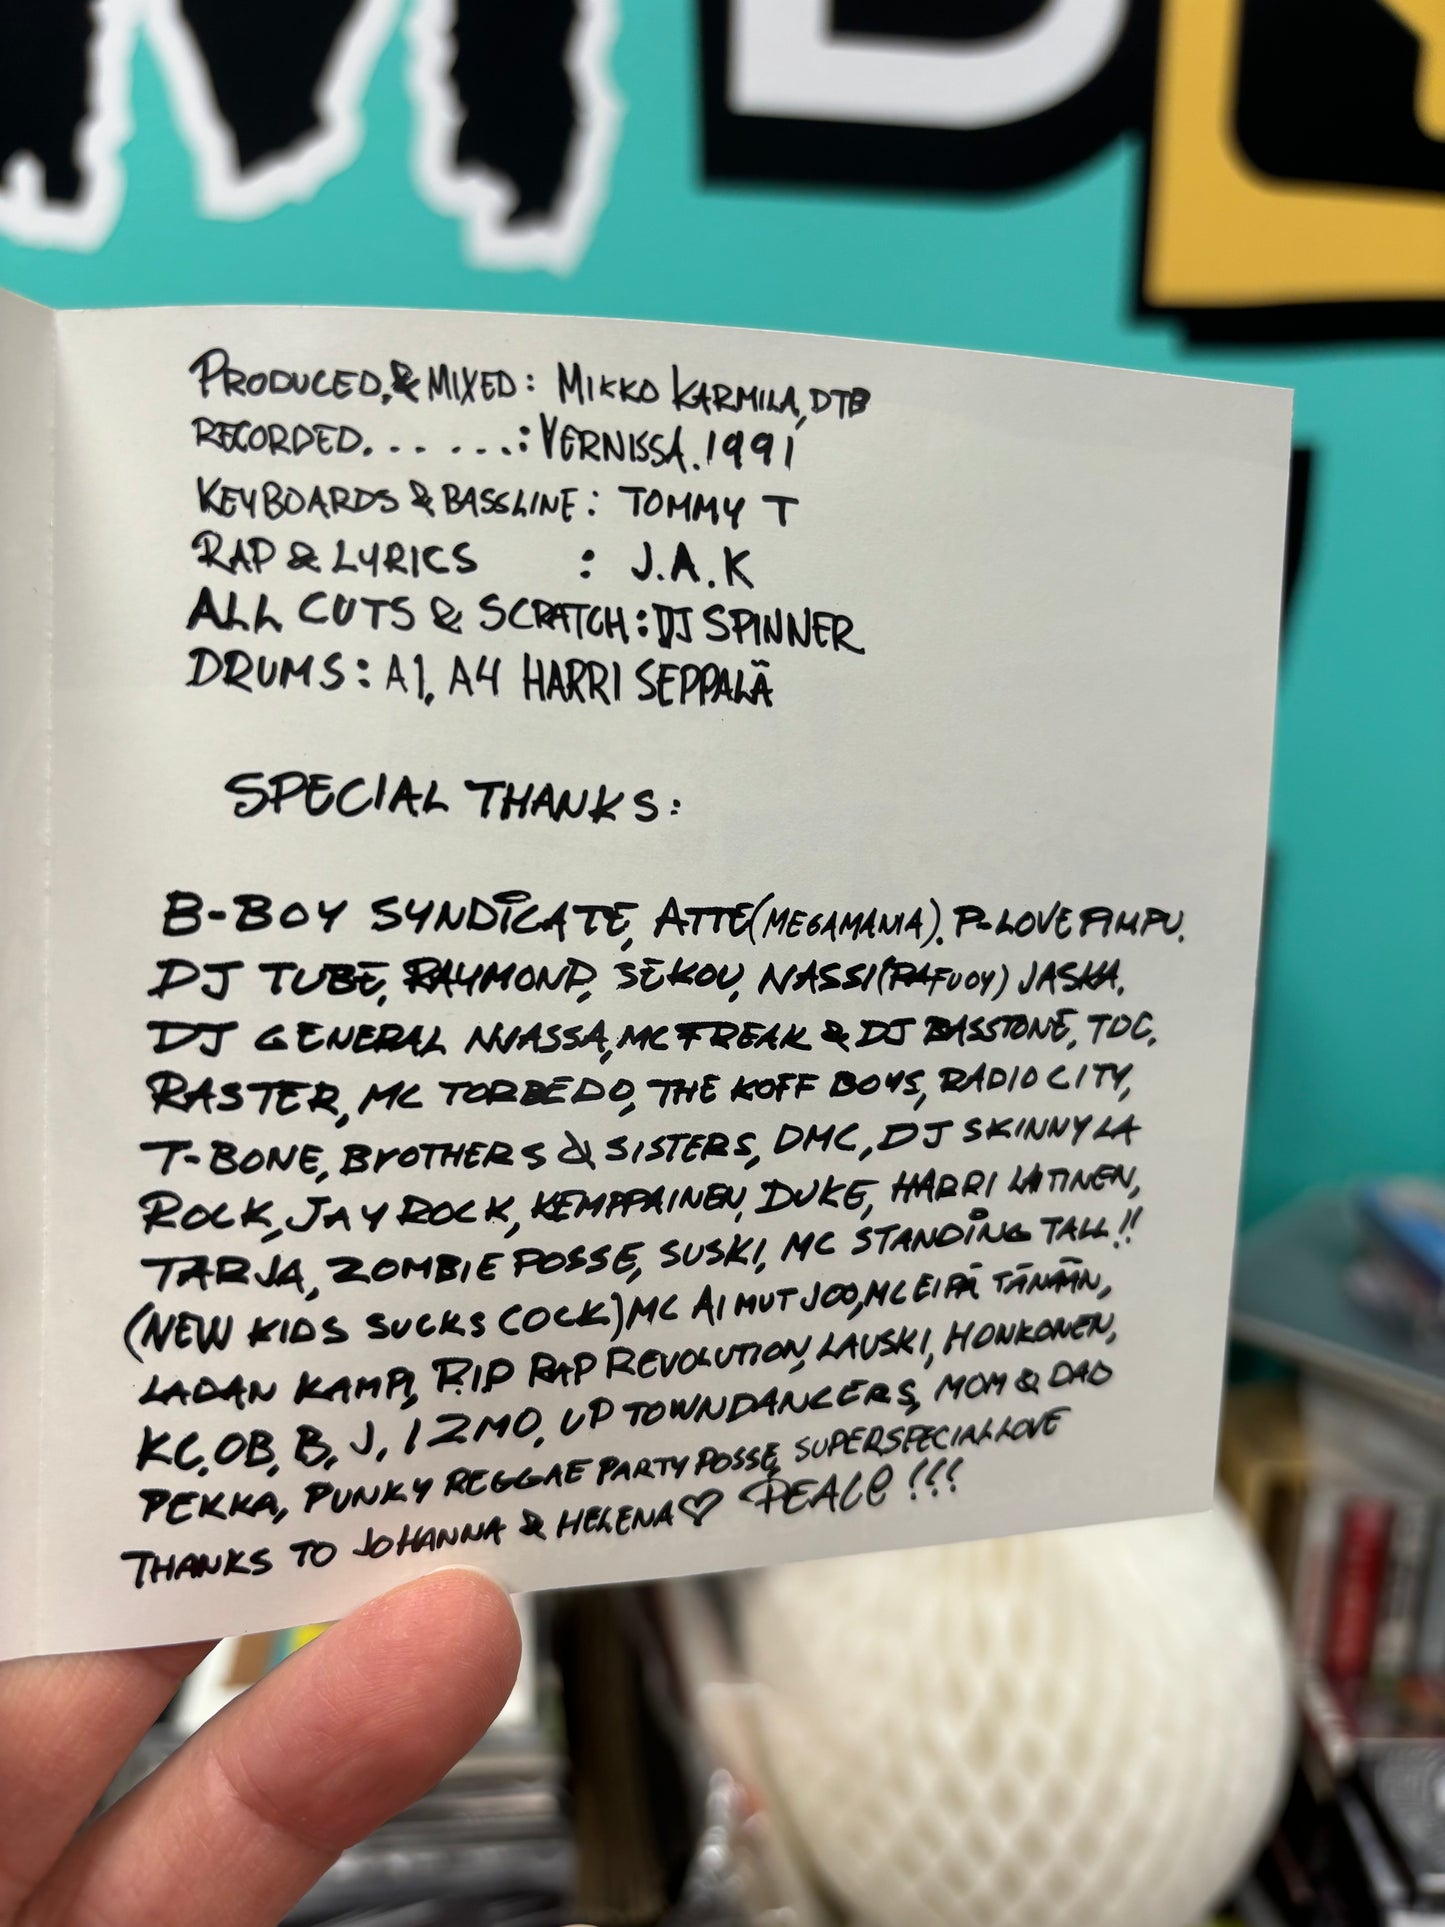 PRODUCED, & MIXED: MIKKO KARMILA, DTB
RECORDED. . . . . . .: VERNISSA. 1991
KEYBOARDS & BASSLINE: TOMMY T
RAP & LYRICS : J.A.K
ALL CUTS & SCRATCH: DJ SPINNER
DRUMS: A1, A4 HARRI SEPPÄLÄ
SPECIAL THANKS:
B-BOY SYNDICATE, ATTE (MEGAMANIA). P-LOVE PIMPU.
DJ TUBE, RAYMOND, SEKOU, NASSI (RAFUOY) JASKA.
DJ GENERAL NJASSA, MC FREAK & DJ BASSTONE, TDC.
RASTER, MC TORBEDO, THE KOFF BOYS, RADIO CITY,
T-BONE, BROTHERS & SISTERS, DMC, DJ SKINNY LA
ROCK, JAY ROCK, KEMPPAINEN, DUKE, HARRI LATINEN,
TARJA, ZOMBIE POSSE, SUSKI, MC STANDING TALL!!
(NEW KIDS SUCKS COCK) MC AI MUT JOO, MC EIPÄ TÄNÄÄN,
LADAN KAMPI, R.I.P RAP REVOLUTION, LAUSKI, HONKONEN,
KC, OB, B, J, IZMO, UPTOWNDANCERS, MOM & DAD
PEKKA, PUNKY REGGAE PARTY POSSE, SUPERSPECIAL LOVE
THANKS TO JOHANNA & HELENA ♡ PEACE!!!